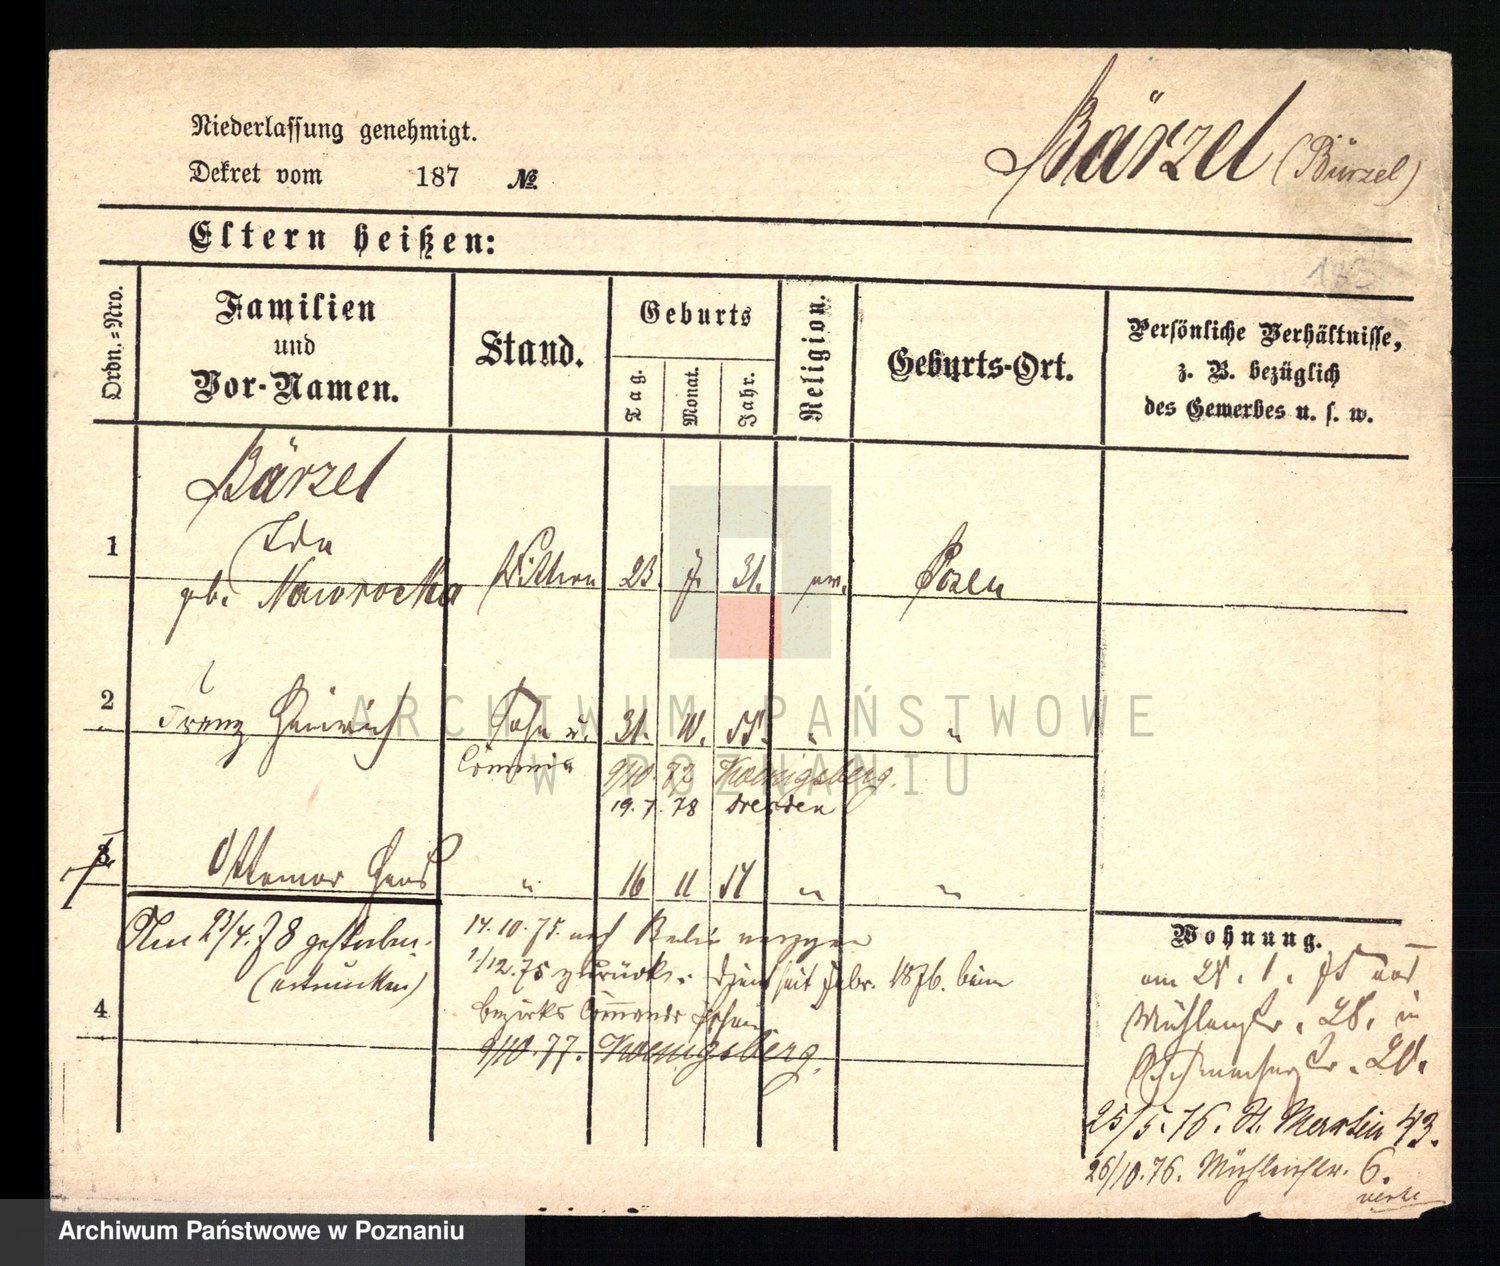 Niederlassung genehmigt.
Dekret vom 187 №
Bärzel (Bürzel)
Eltern heißen:
183
Ordn.-Nro.
Familien
und
Vor-Namen.
Stand.
Geburts
Tag.
Monat.
Jahr.
Religion.
Geburts-Ort.
Persönliche Verhältnisse,
z. B. bezüglich
des Gewerbes u. s. w.
Bärzel
1 Ida
geb. Nawrocka Wittwe 23. 7. 31. ev. Posen
2 Franz Heinrich Sohn u. 31. 10. 55. " "
Commis 9/10 72 Koenigsberg.
19. 7. 78 Dresden
3 Ottomar Hans " 16 11 57 " "
Am 23/4. 78 gestorben.
(ertrunken)
14. 10. 75. nach Berlin verzogen
1/12. 75 zurück. dient seit Febr. 1876. beim
Bezirks Commando
9/10. 77. Koenigsberg.
4
Wohnung.
am 28. 1. 75 von
Mühlenstr. 28. in
20.
25/5. 76. St. Martin 43.
26/10. 76. Mühlenstr. 6.
verte
ARCHIWUM PAŃSTWOWE
W POZNANIU
Archiwum Państwowe w Poznaniu